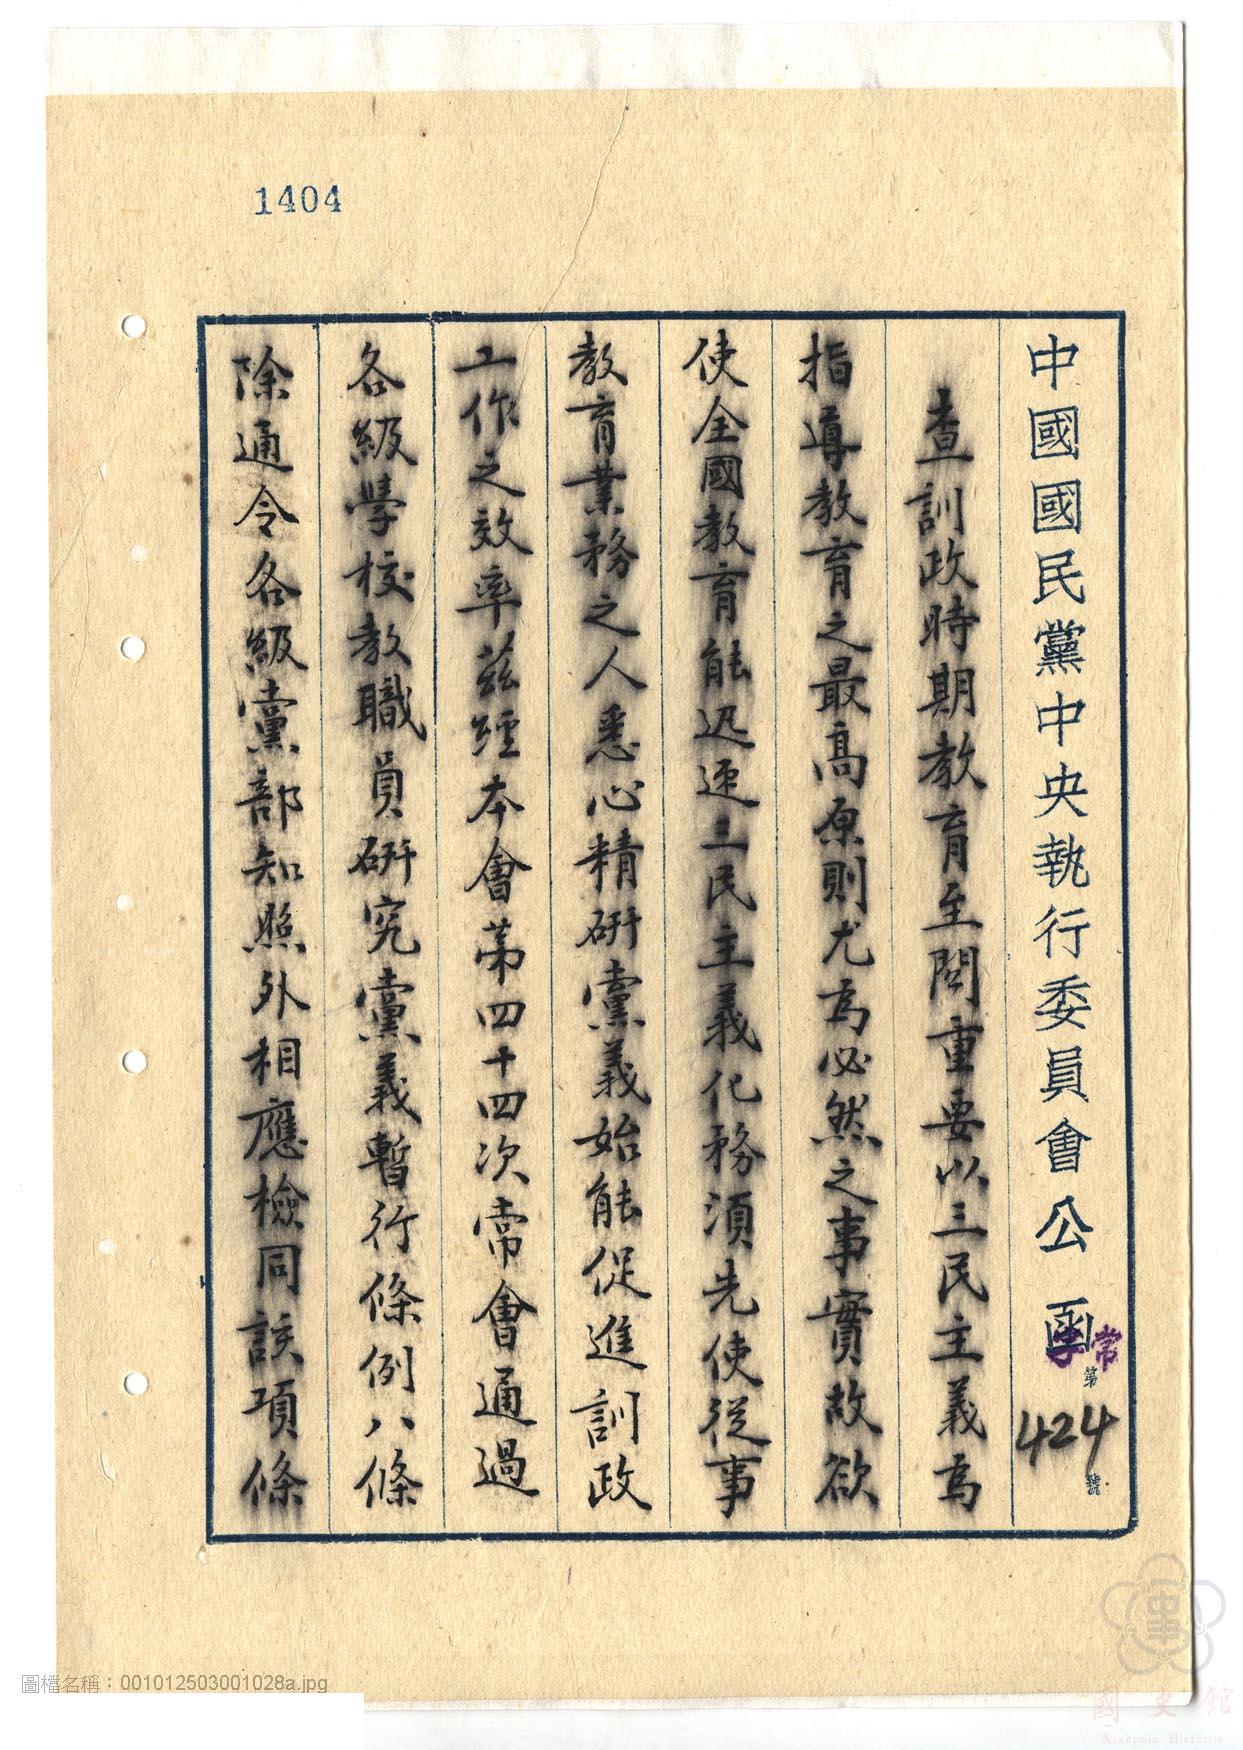 1404
中國國民黨中央執行委員會公函
常字
第424號
查訓政時期教育至關重要以三民主義為
指導教育之最高原則尤為必然之事實故欲
使全國教育能迅速三民主義化務須先使從事
教育業務之人悉心精研黨義始能促進訓政
工作之效率茲經本會第四十四次常會通過
各級學校教職員研究黨義暫行條例八條
除通令各級黨部知照外相應檢同該項條
圖檔名稱：001012503001028a.jpg
國史館
Academia Historica